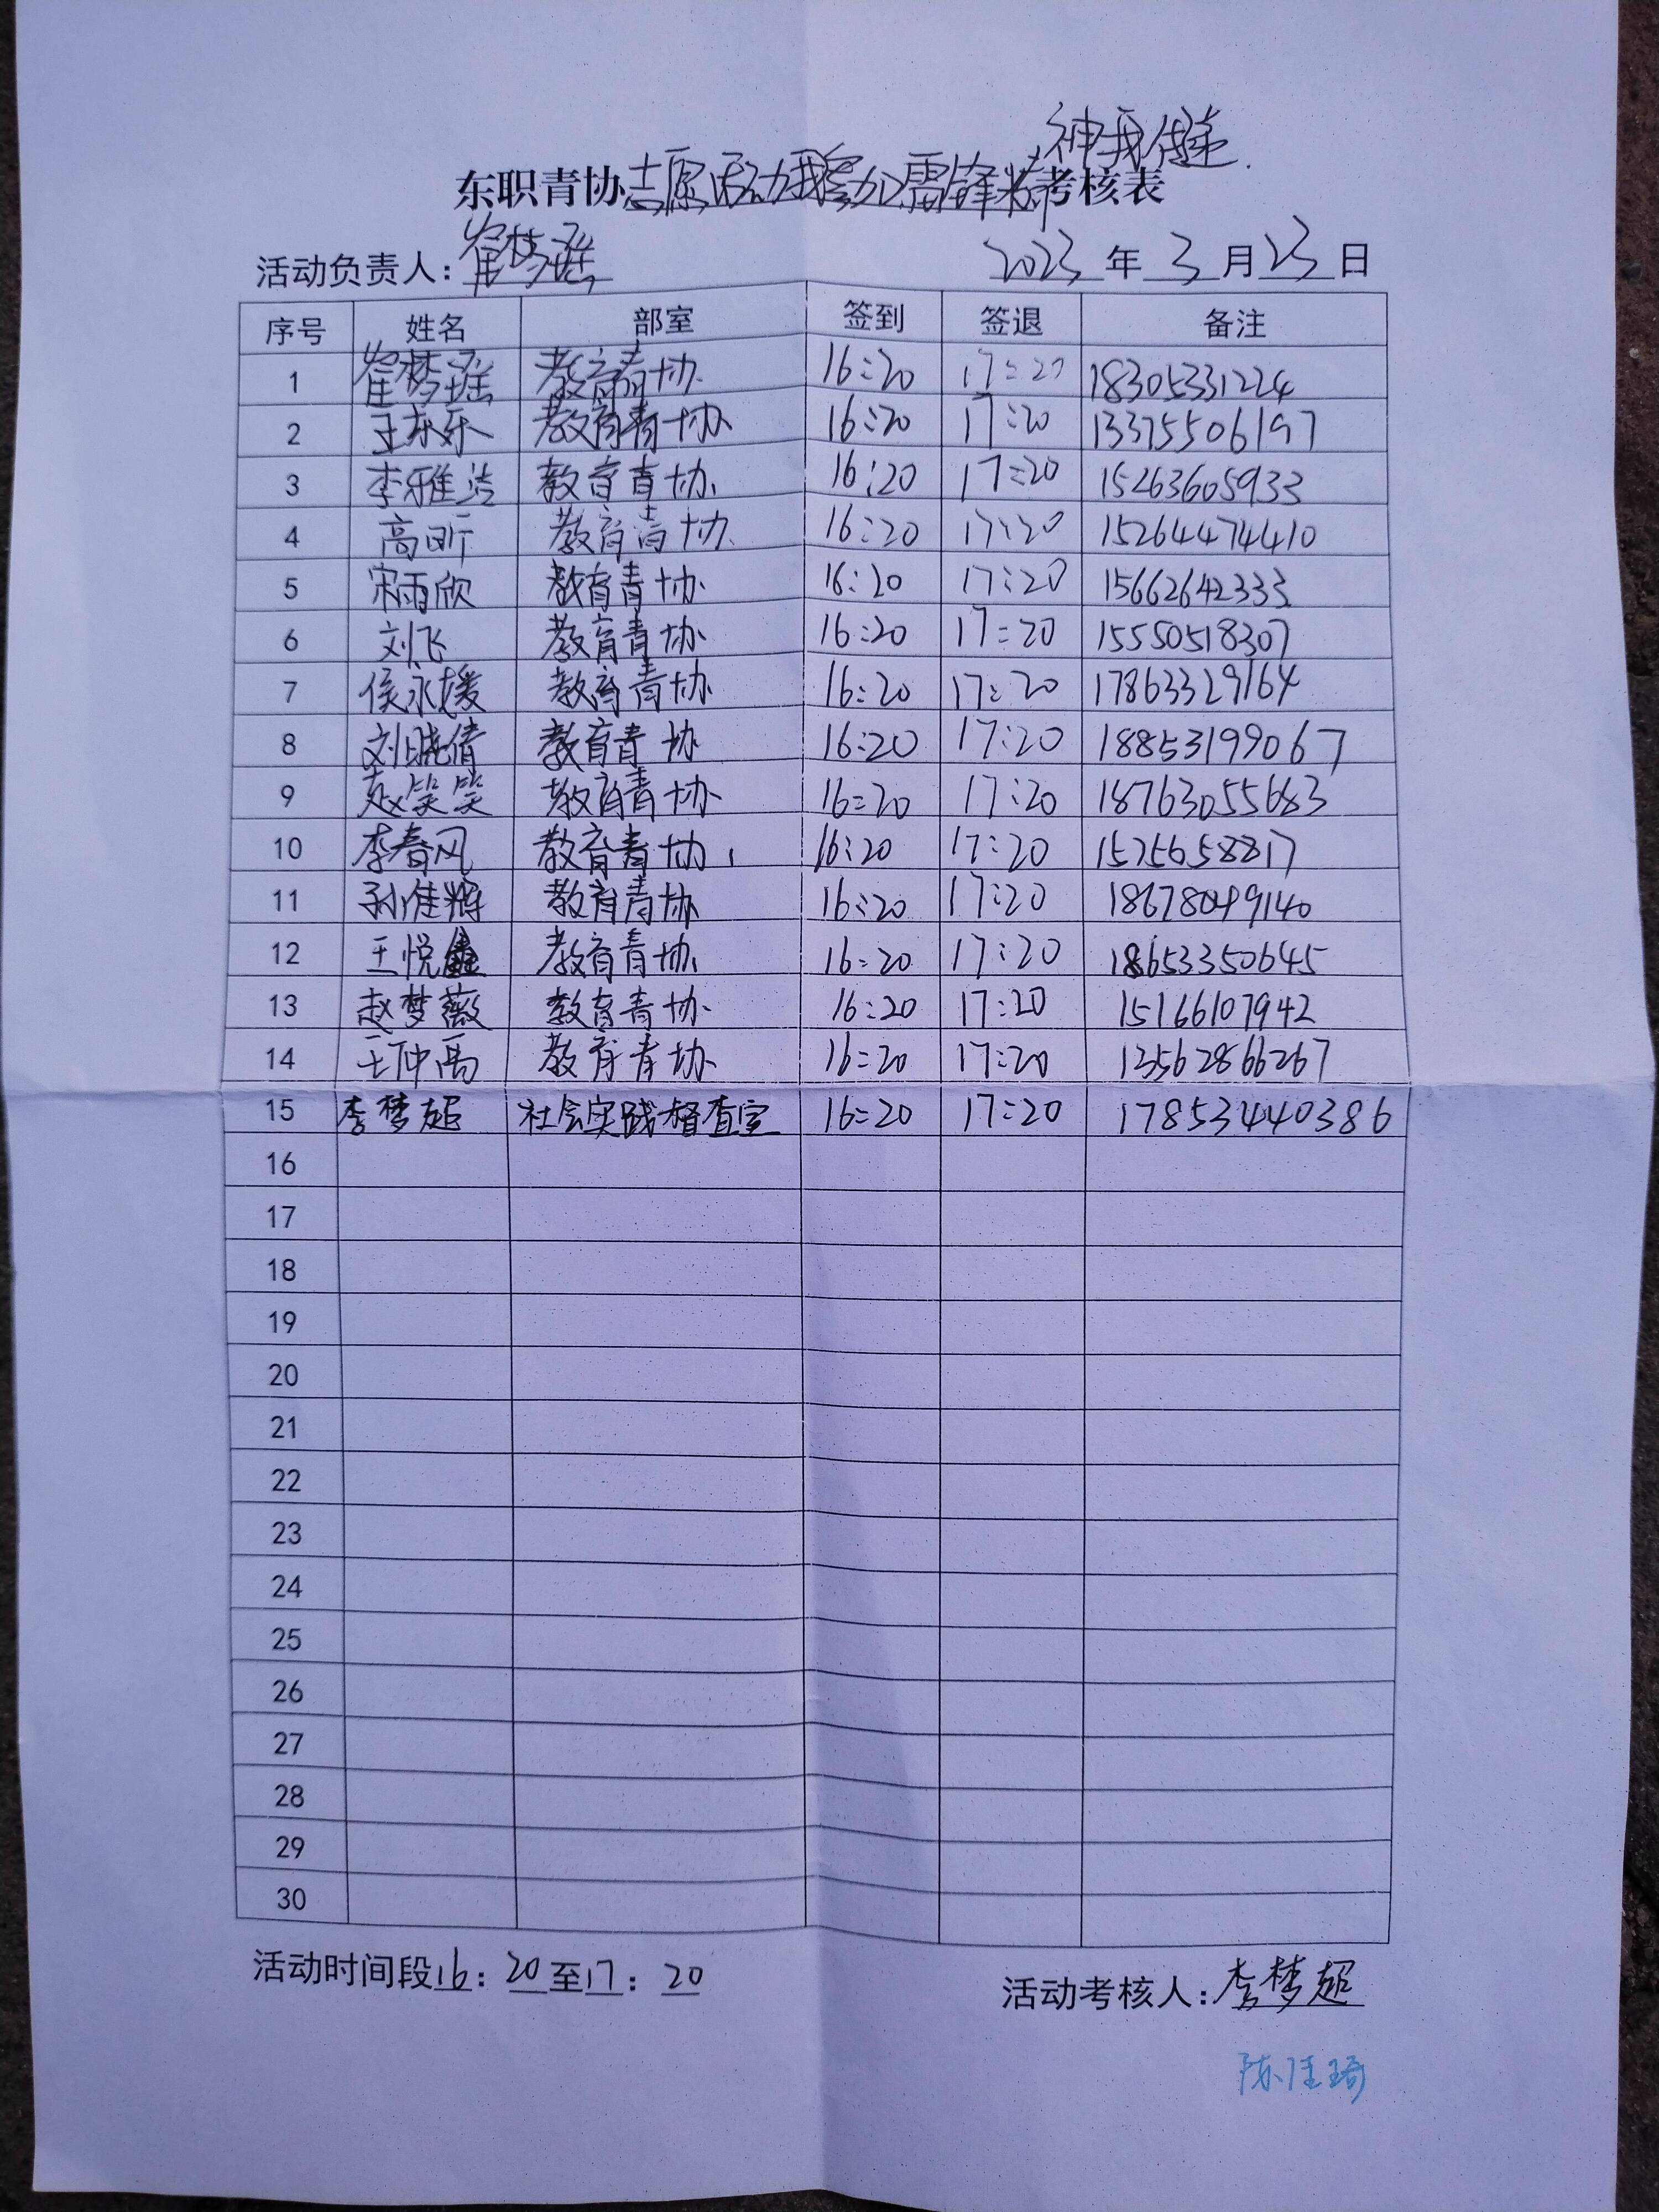 神我传递.
东职青协志愿活动我参加雷锋精考核表
活动负责人：崔梦瑶 2023年3月23日
序号 姓名 部室 签到 签退 备注
1 崔梦瑶 教育青协 16:20 17:20 18305331224
2 王乐乐 教育青协 16:20 17:20 13375506197
3 李雅洁 教育青协 16:20 17:20 15263605933
4 高昕 教育青协 16:20 17:20 15264474410
5 宋雨欣 教育青协 16:20 17:20 15662642333
6 刘飞 教育青协 16:20 17:20 15550518307
7 侯永媛 教育青协 16:20 17:20 17863329164
8 刘晓倩 教育青协 16:20 17:20 18853199067
9 赵笑笑 教育青协 16:20 17:20 18763055683
10 李春风 教育青协 16:20 17:20 1525658817
11 孙佳辉 教育青协 16:20 17:20 18678049140
12 王悦鑫 教育青协 16:20 17:20 18653350645
13 赵梦薇 教育青协 16:20 17:20 15166107942
14 王仲禹 教育青协 16:20 17:20 13562866267
15 李梦超 社会实践督查室 16:20 17:20 17853440386
16
17
18
19
20
21
22
23
24
25
26
27
28
29
30
活动时间段16：20至17：20 活动考核人：李梦超
陈佳琦